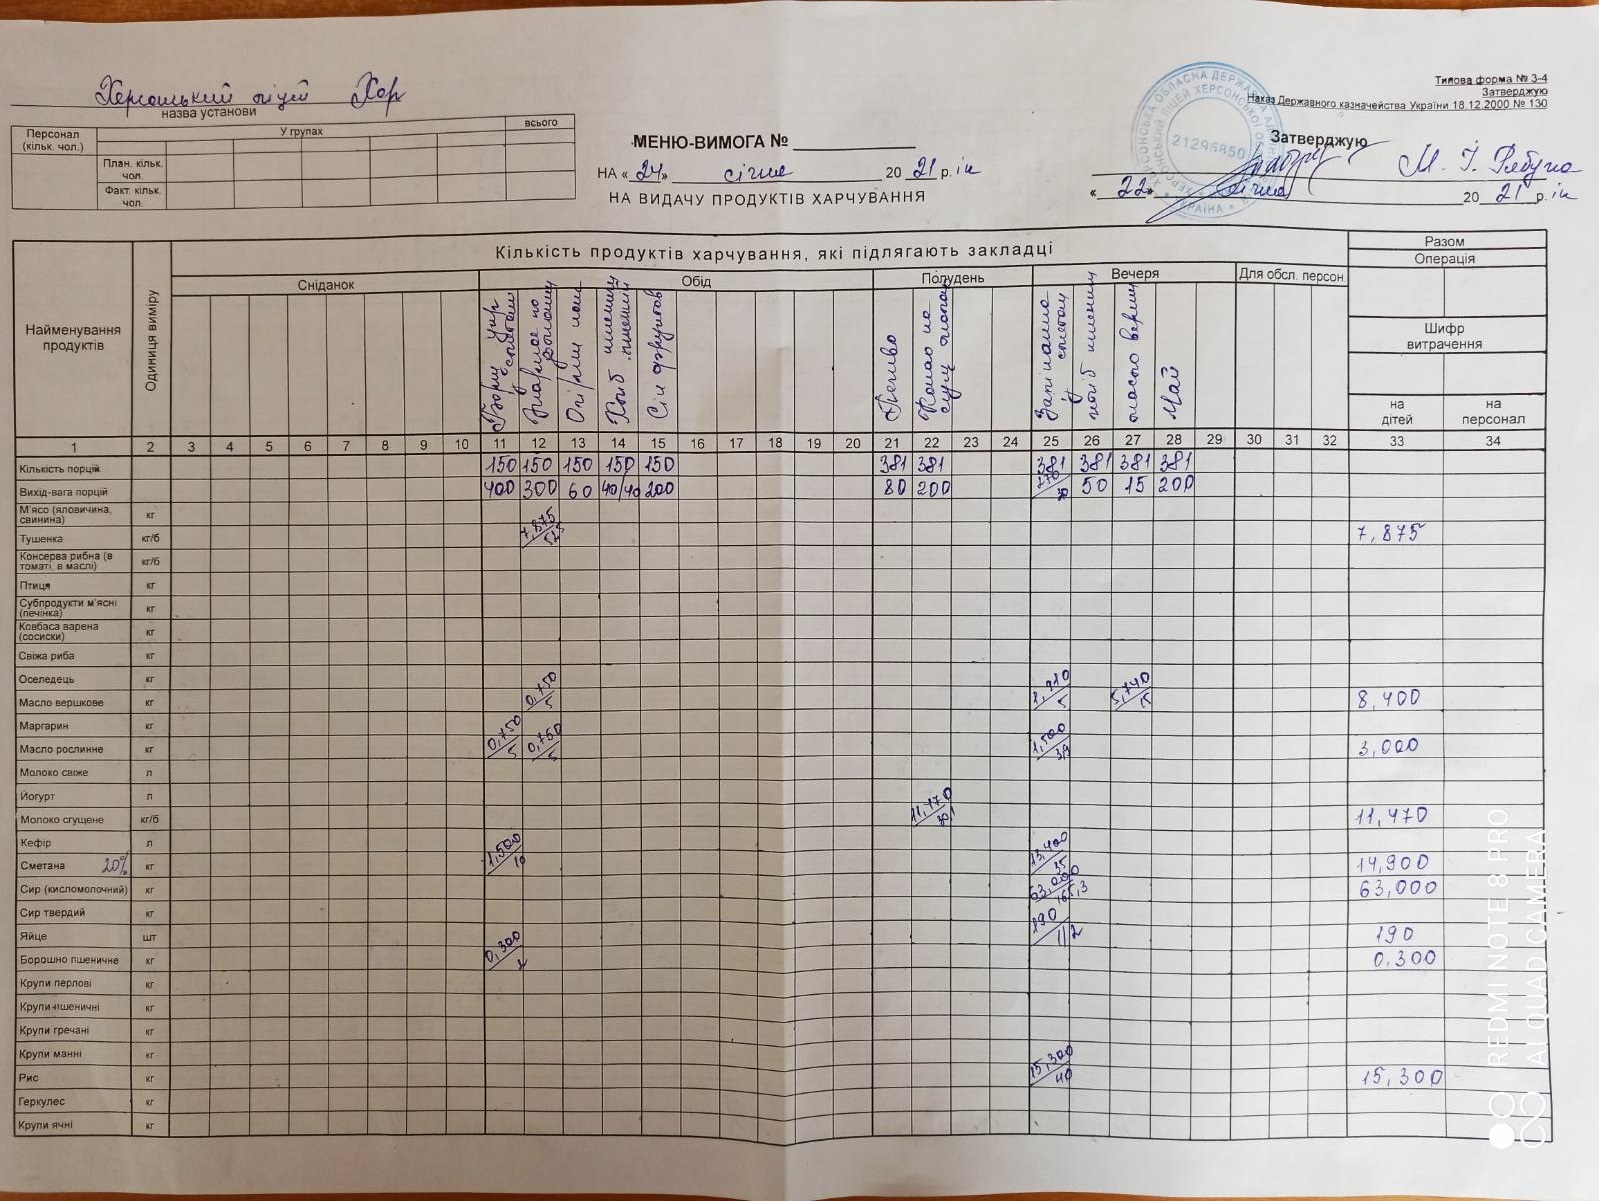 Типова форма № З-4
Затверджую
Наказ Державного казначейства України 18.12.2000 № 130
Херсонський ліцей Хор
назва установи
Персонал (кільк. чол.) У групах всього
План. кільк. чол.
Факт. кільк. чол.
МЕНЮ-ВИМОГА №
НА « 24» січня 20 21 р. ік
НА ВИДАЧУ ПРОДУКТІВ ХАРЧУВАННЯ
21296850
Затверджую
М. І.
« 22» січня 20 21 р. ік
Найменування продуктів
Одиниця виміру
Кількість продуктів харчування, які підлягають закладці
Разом
Операція
Сніданок Обід Полудень Вечеря Для обсл. персон.
Шифр витрачення
на дітей на персонал
Борщ укр сметаною
Жаркое по
Огірки
Хліб пшенич
Сік фруктов
Печиво
Какао на сгущ
Запіканка сметан
хліб пшенич
масло верш
Чай
1 2 3 4 5 6 7 8 9 10 11 12 13 14 15 16 17 18 19 20 21 22 23 24 25 26 27 28 29 30 31 32 33 34
Кількість порцій 150 150 150 150 150 381 381 381 381 381 381
Вихід-вага порцій 400 300 60 40/40 200 80 200 270/30 50 15 200
М'ясо (яловичина, свинина) кг
Тушенка кг/б 7,875/52,5 7,875
Консерва рибна (в томаті, в маслі) кг/б
Птиця кг
Субпродукти м'ясні (печінка) кг
Ковбаса варена (сосиски) кг
Свіжа риба кг
Оселедець кг
Масло вершкове кг 0,750/5 1,910/5 5,740/15 8,400
Маргарин кг
Масло рослинне кг 0,750/5 0,750/5 1,500/3,9 3,000
Молоко свіже л
Йогурт л
Молоко сгущене кг/б 11,470/30,1 11,470
Кефір л
Сметана 20% кг 1,500/10 13,400/35 14,900
Сир (кисломолочний) кг 63,000/165,3 63,000
Сир твердий кг
Яйце шт 190/1/2 190
Борошно пшеничне кг 0,300/2 0,300
Крупи перлові кг
Крупи пшеничні кг
Крупи гречані кг
Крупи манні кг
Рис кг 15,300/40 15,300
Геркулес кг
Крупи ячні кг
REDMI NOTE 8 PRO
AI QUAD CAMERA